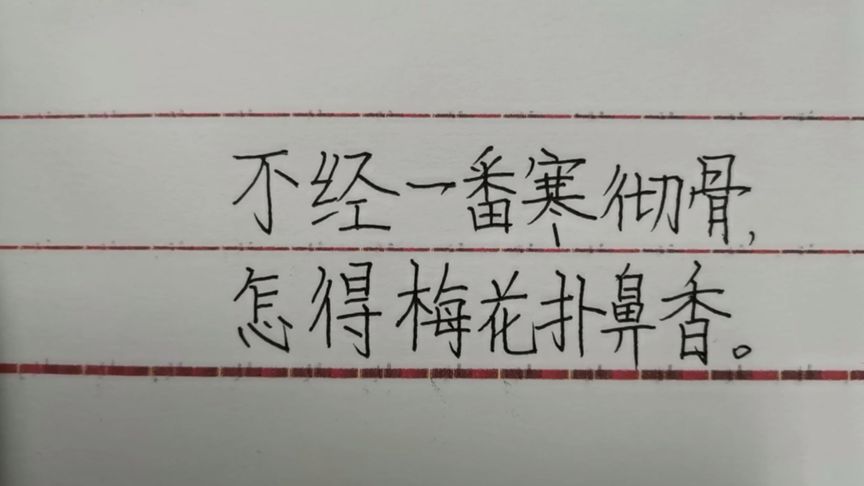 不经一番寒彻骨,
怎得梅花扑鼻香。